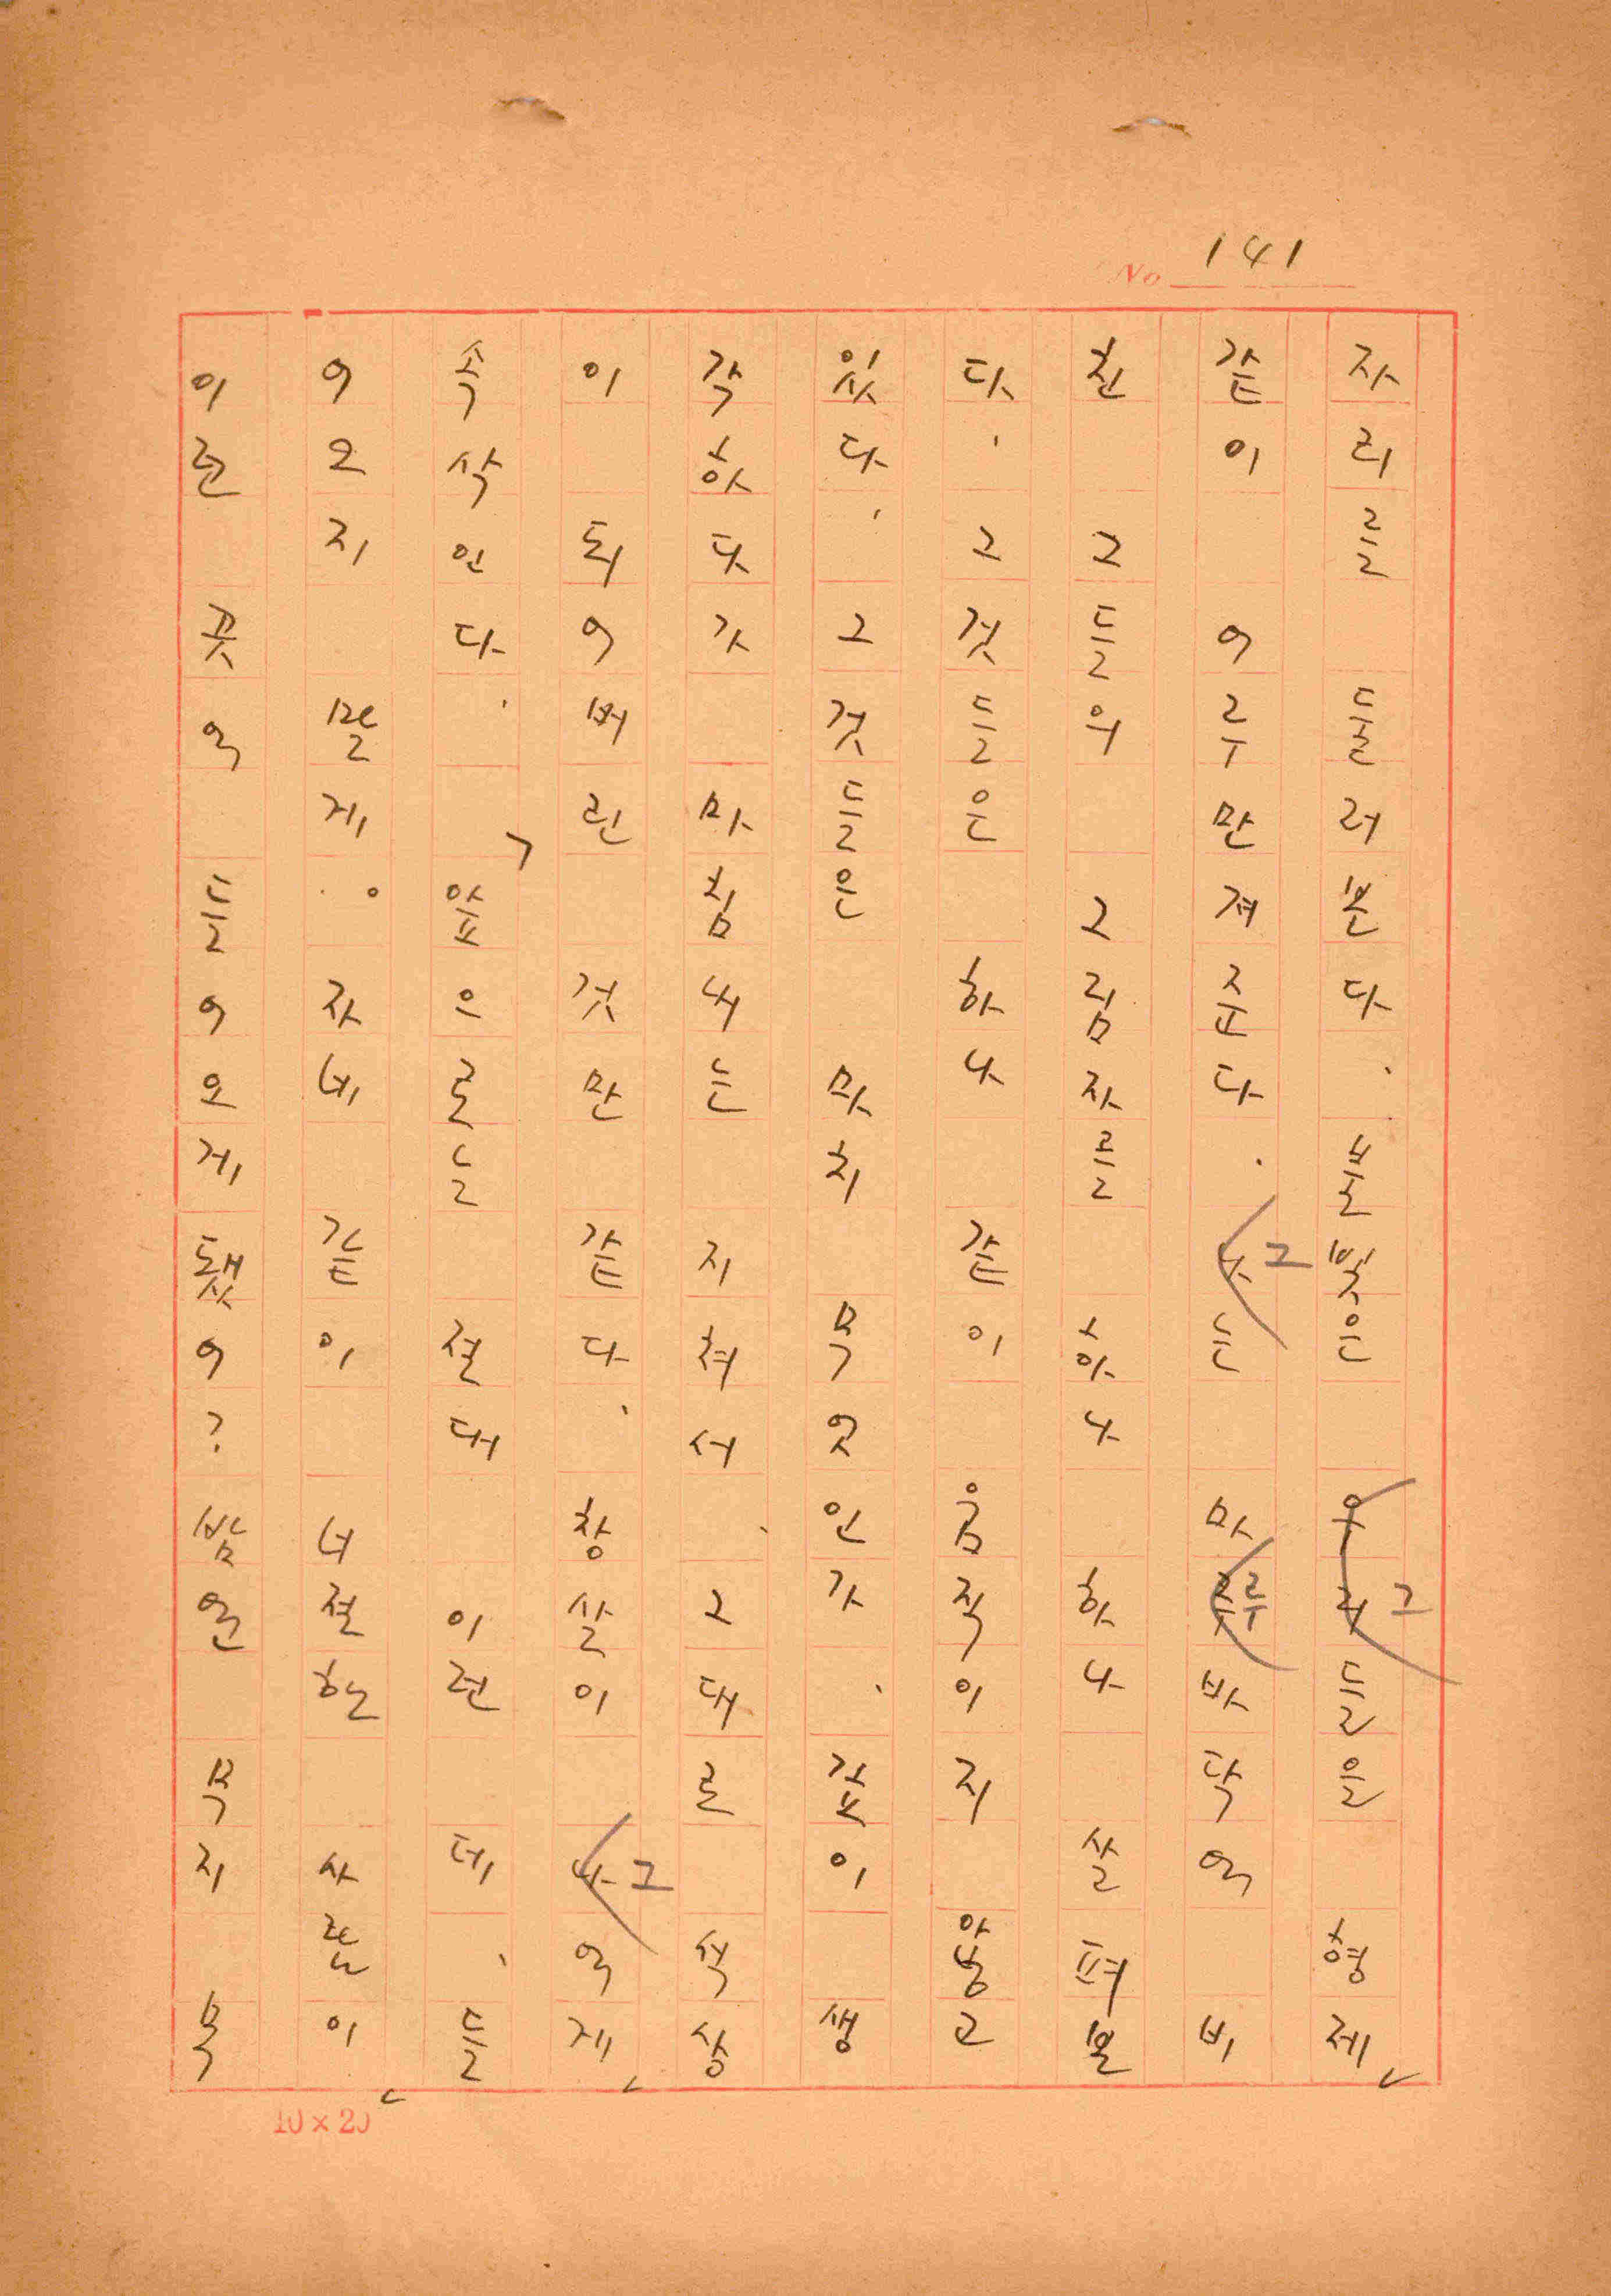 No 141
자리를 둘러본다. 불빛은 우리들을 형제
그
같이 어루만져준다. 나는 마루바닥에 비
그
친 그들의 그림자를 하나하나 살펴본
다. 그것들은 하나 같이 움직이지 않고
있다. 그것들은 마치 무엇인가, 깊이 생
각하다가 마침내는 지쳐서, 그대로 석상
이 되어버린 것만 같다. 창살이 나에게
그
속삭인다. 「앞으로늘 절대 이런 데, 들
어오지 말게.. 자네 같이 너절한 사람이
이런 곳에 들어오게 됐어? 밤엔
10×20